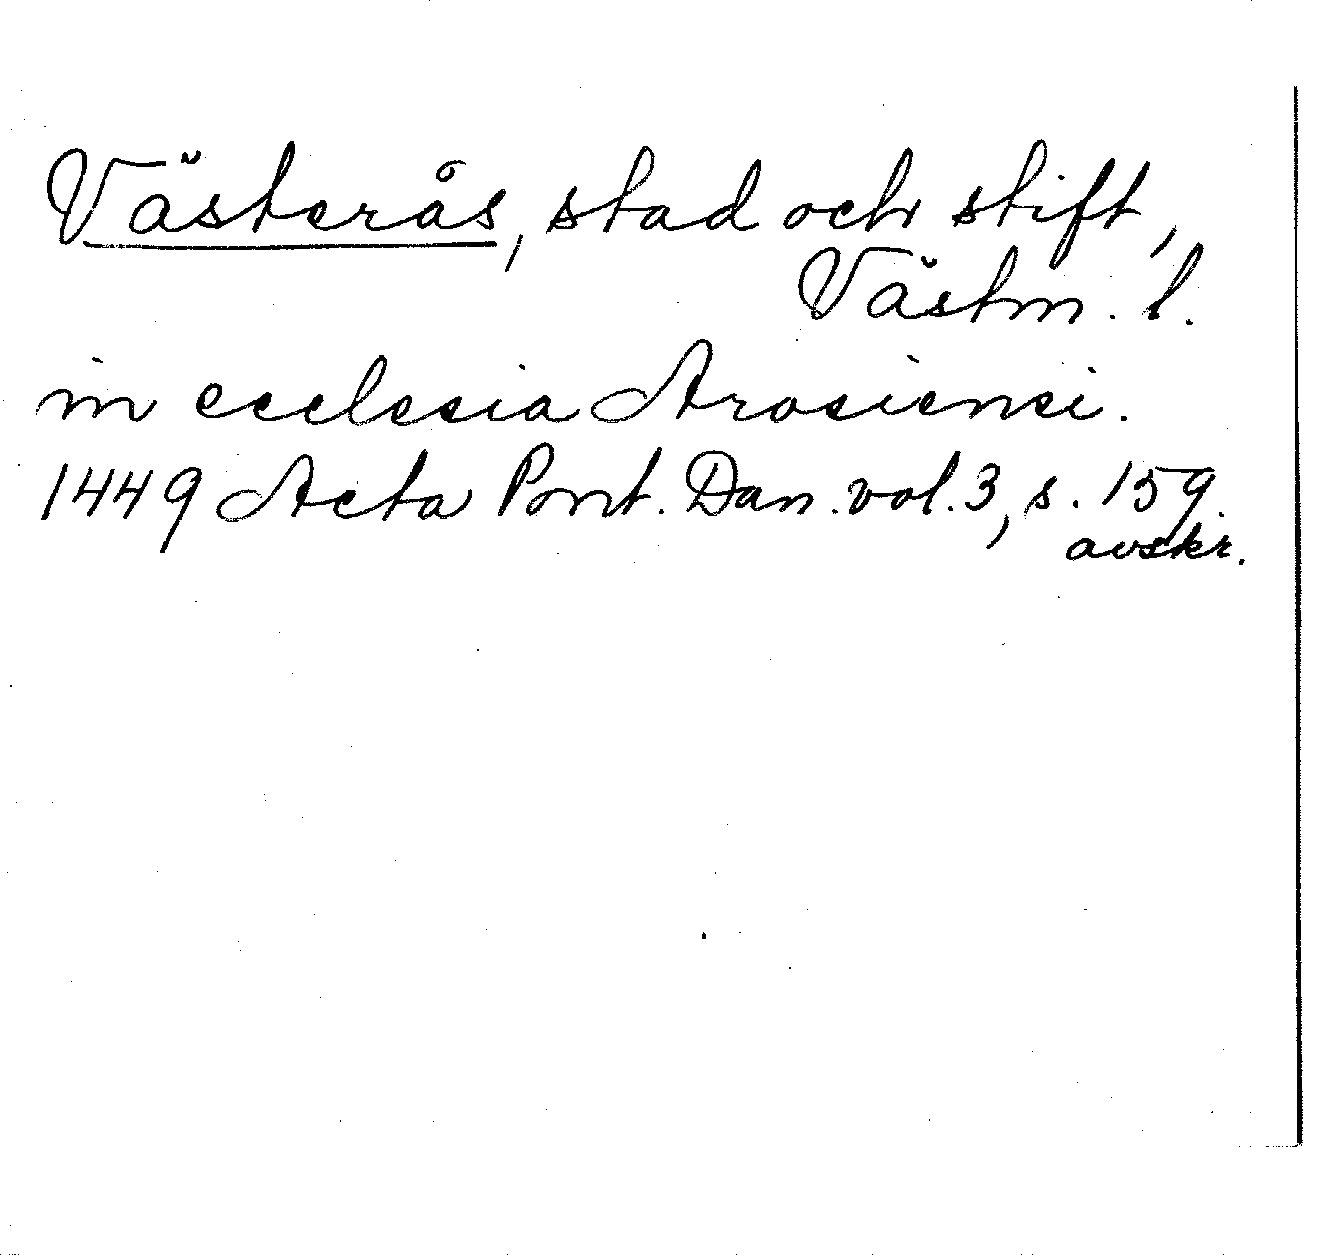 Västerås, stad och stift,
Västm. l.
in ecclesia Arosiensi.
1449 Acta Pont. Dan. vol. 3, s. 159.
avskr.